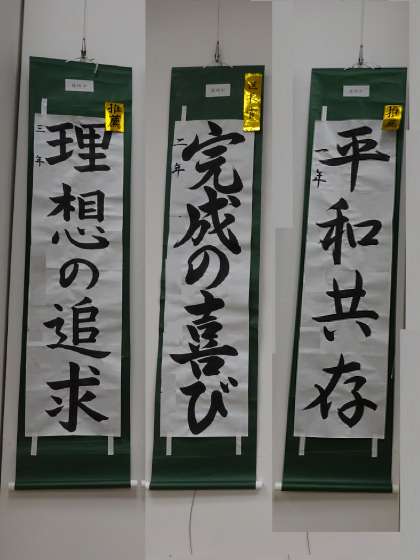 理想の追求
三年
推薦
完成の喜び
二年
平和共存
一年
推薦